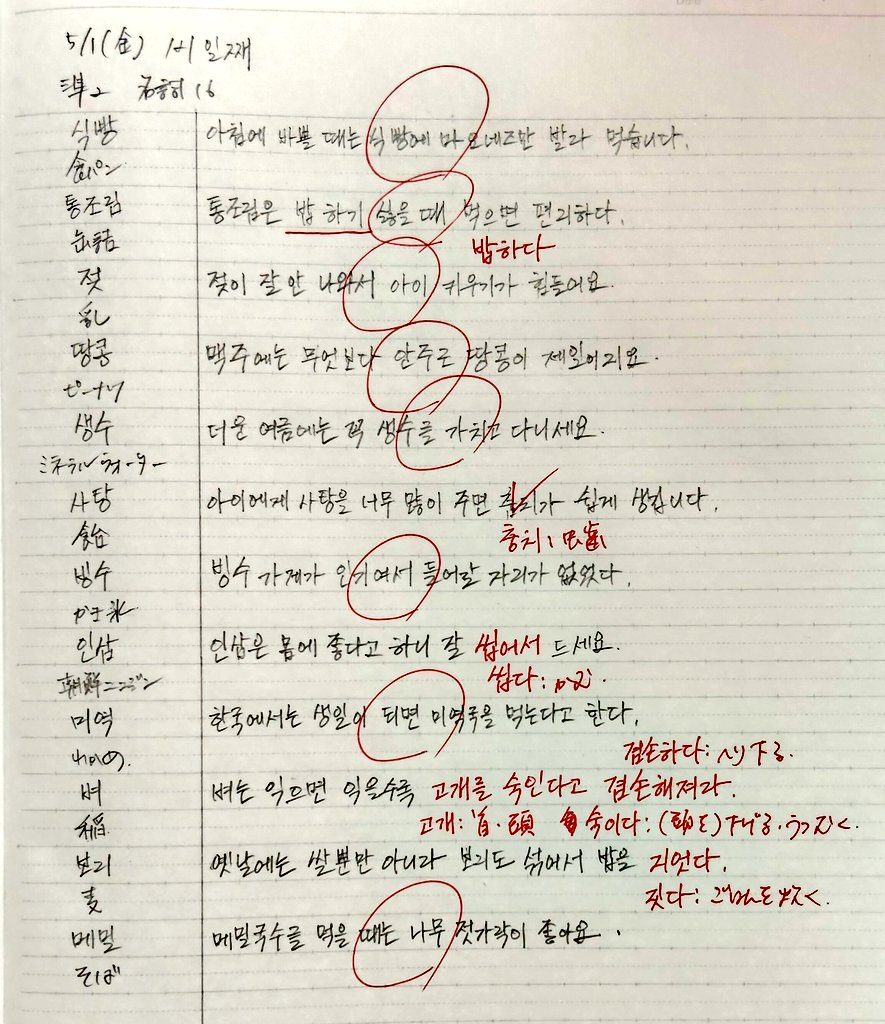 5/1(金) 121일째
準2 名詞16
식빵 아침에 바쁠 때는 식빵에 마요네즈만 발라 먹습니다.
食パン
통조림 통조림은 밥 하기 싫을 때 먹으면 편리하다.
缶詰 밥하다
젖 젖이 잘 안 나와서 아이 키우기가 힘들어요.
乳
땅콩 맥주에는 무엇보다 안주로 땅콩이 제일이지요.
ピーナツ
생수 더운 여름에는 꼭 생수를 가치고 다니세요.
ミネラルウォーター
사탕 아이에게 사탕을 너무 많이 주면 가 쉽게 생깁니다.
飴 충치: 虫歯
빙수 빙수 가게가 인기여서 들어갈 자리가 없었다.
かき氷
인삼 인삼은 몸에 좋다고 하니 잘 씹어서 드세요.
朝鮮ニンジン 씹다: かむ.
미역 한국에서는 생일이 되면 미역국을 먹는다고 한다.
わかめ. 겸손하다: へり下る.
벼 벼는 익으면 익을수록 고개를 숙인다고 겸손해져라.
稲 고개: 首・頭 숙이다: (頭を)下げる・うつむく.
보리 옛날에는 쌀뿐만 아니라 보리도 섞어서 밥을 지었다.
麦 짓다: ごはんを炊く.
메밀 메밀국수를 먹을 때는 나무 젓가락이 좋아요.
そば